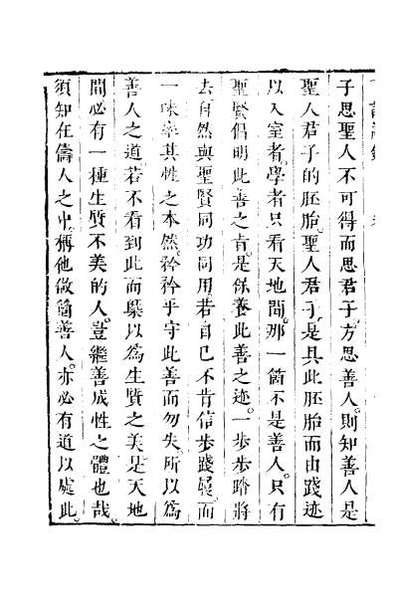 子思聖人不可得而思君子方思善人則知善人是
聖人君子的胚胎聖人君子是具此胚胎而由踐迹
以入室者學者只看天地間那一箇不是善人只有
聖賢倡明此善之旨是保養此善之迹一步步踏將
去自然與聖賢同功同用若自己不肯信步踐履而
一味率其性之本然矜矜乎守此善而勿失所以為
善人之道若不看到此而槩以為生質之美是天地
間必有一種生質不美的人豈繼善成性之體也哉
須知在儔人之中稱他做箇善人亦必有道以處此